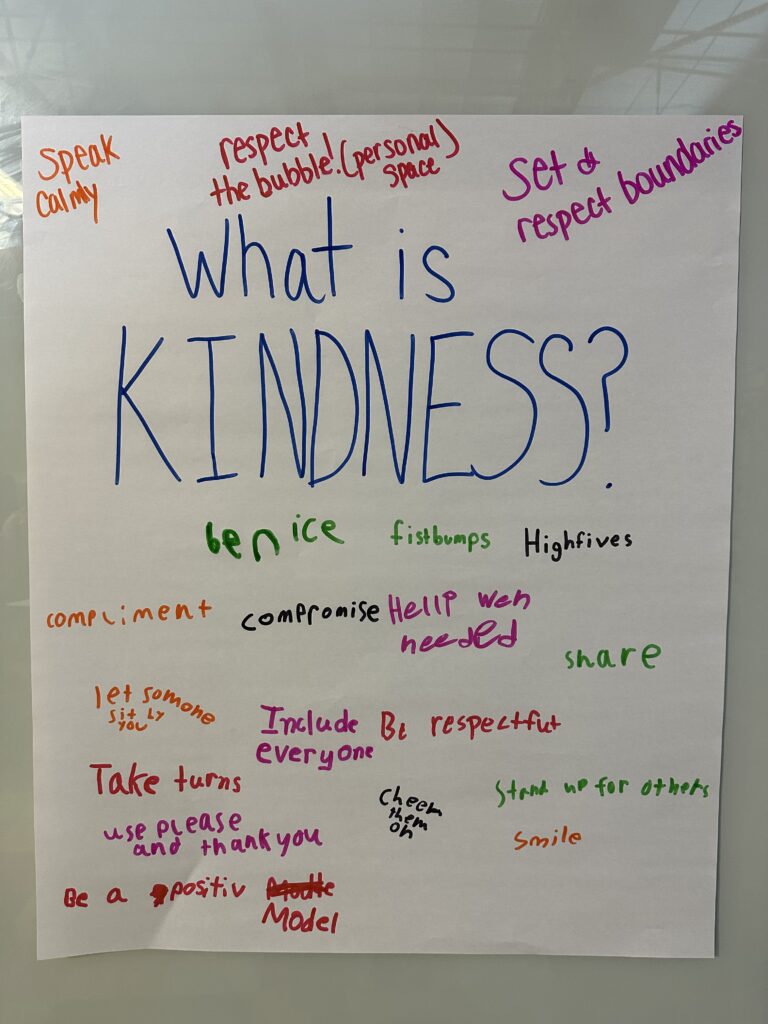 Speak
Calmly
respect
the bubble! (personal)
space
Set &
respect boundaries
What is
KINDNESS?
be nice
fistbumps
Highfives
compliment
compromise
Hellp weh
needed
share
let somone
sit by
you
Include
everyone
Be respectful
Take turns
Cheer
them
on
Stand up for others
use please
and thank you
Smile
Be a positiv
Model